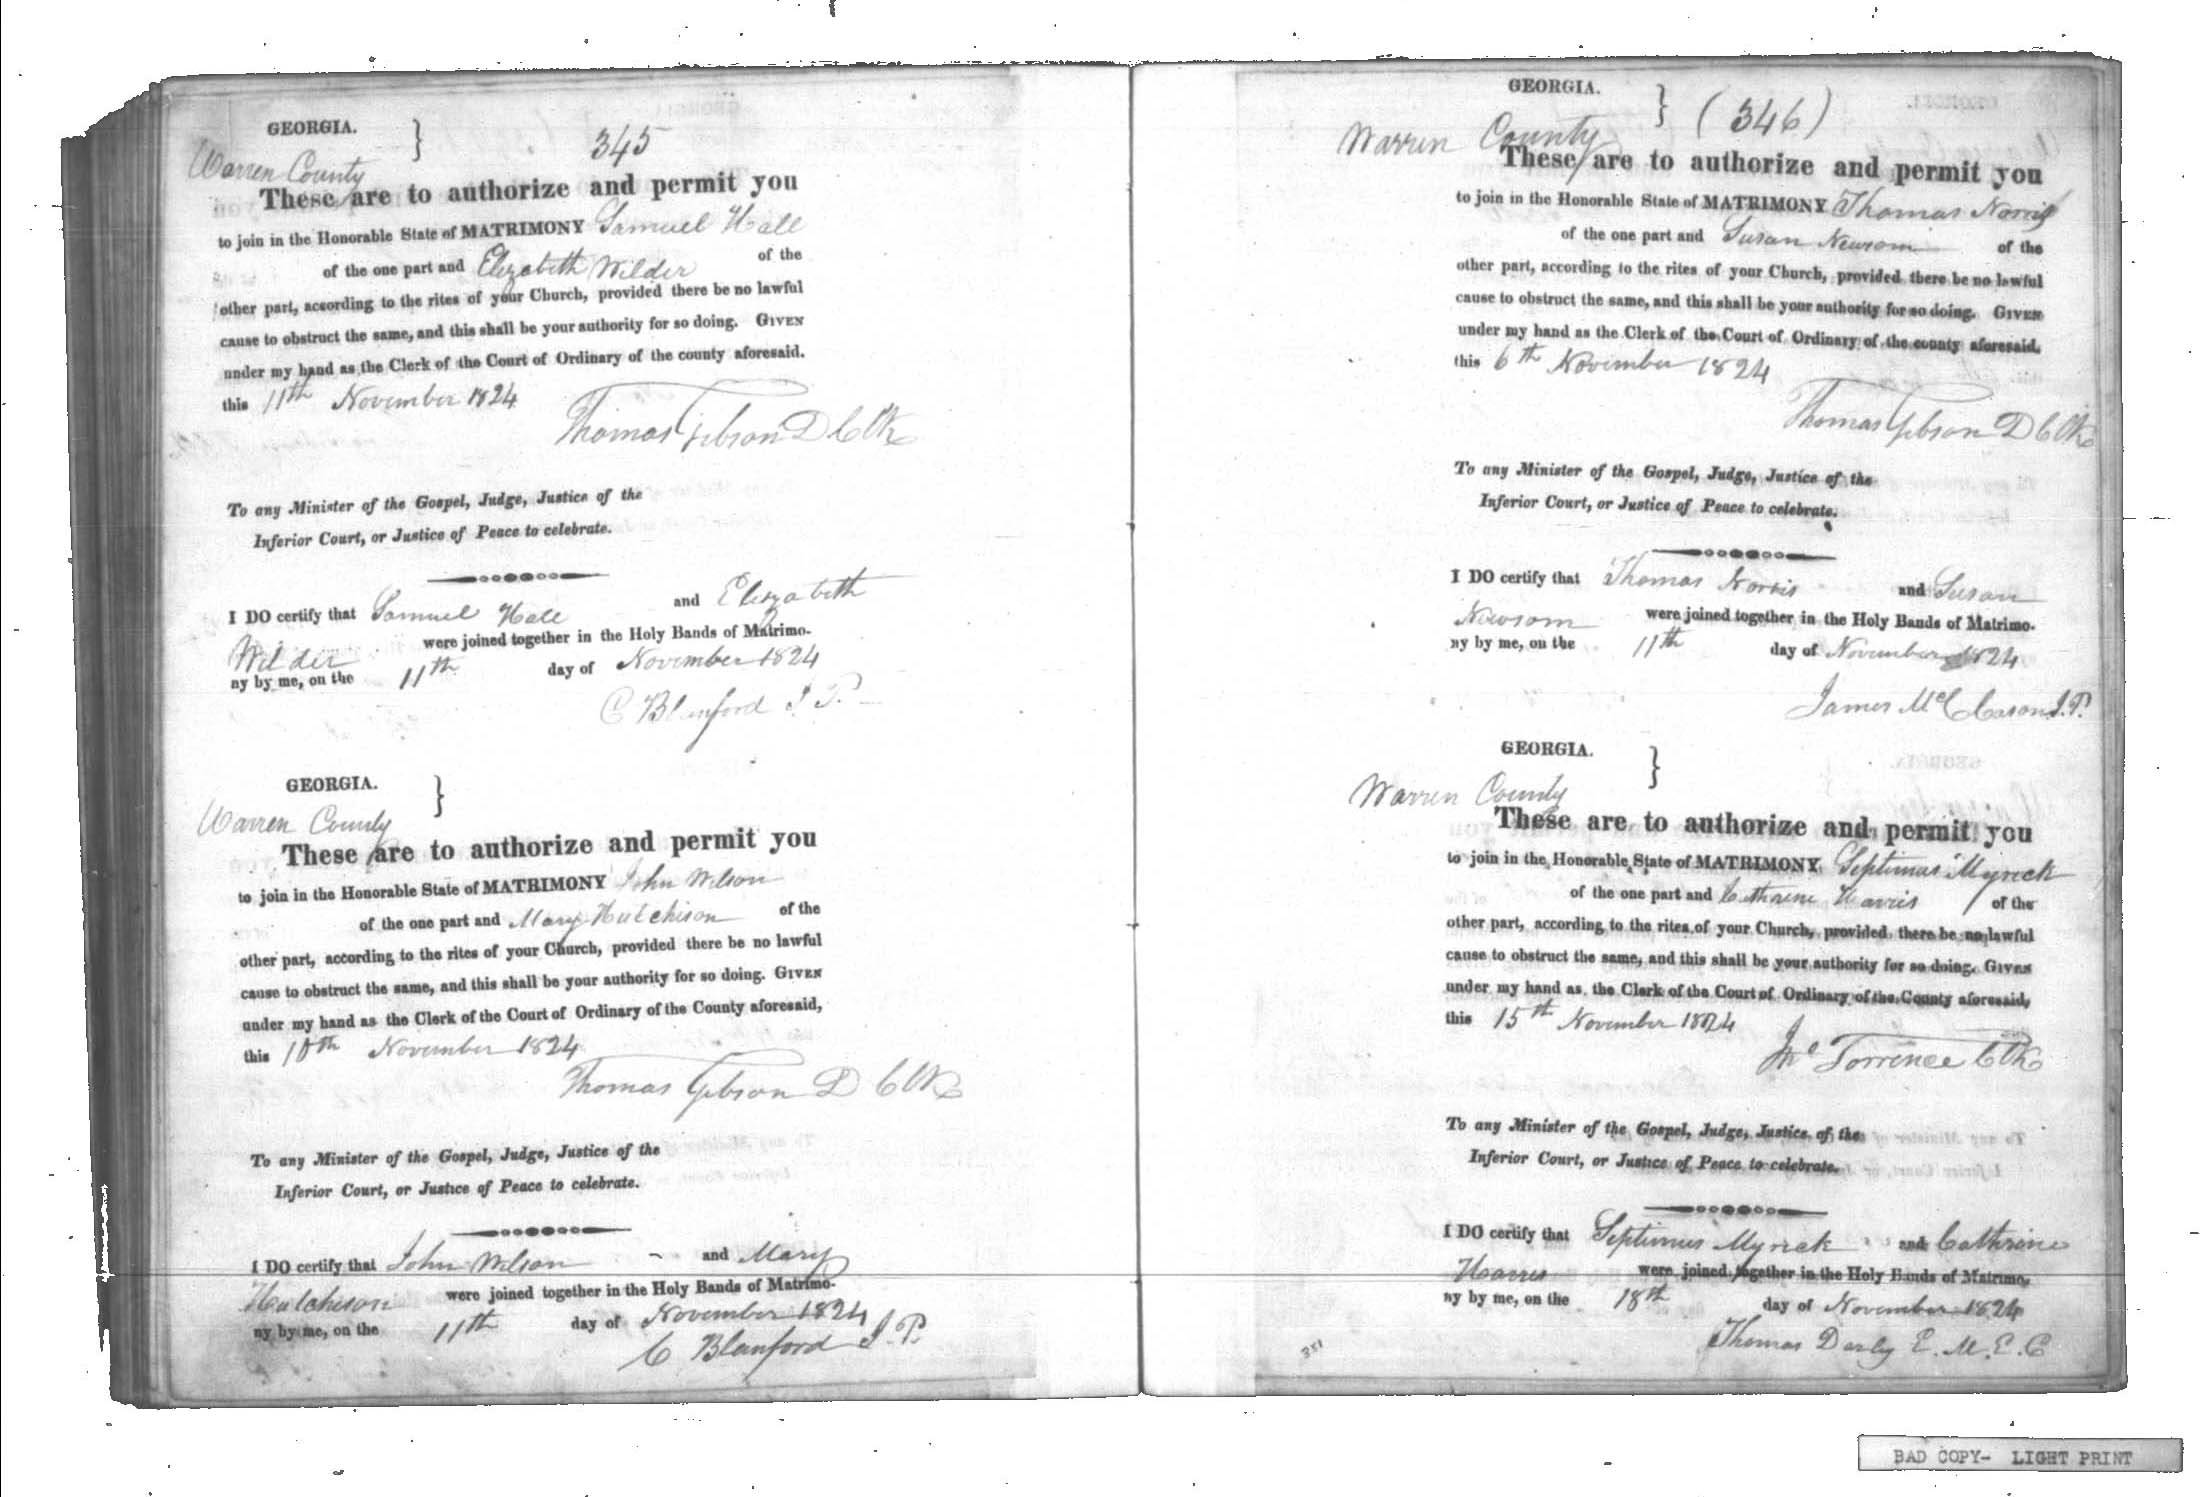 GEORGIA. }
345
Warren County
These are to authorize and permit you
to join in the Honorable State of MATRIMONY Samuel Hall
of the one part and Elizabeth Wilder of the
other part, according to the rites of your Church, provided there be no lawful
cause to obstruct the same, and this shall be your authority for so doing. GIVEN
under my hand as the Clerk of the Court of Ordinary of the county aforesaid.
this 11th November 1824
Thomas Gibson D Clk
To any Minister of the Gospel, Judge, Justice of the
Inferior Court, or Justice of Peace to celebrate.
I DO certify that Samuel Hall and Elizabeth
Wilder were joined together in the Holy Bands of Matrimo-
ny by me, on the 11th day of November 1824
C Blanford J. P.
GEORGIA. }
Warren County
These are to authorize and permit you
to join in the Honorable State of MATRIMONY John Wilson
of the one part and Mary Hutchison of the
other part, according to the rites of your Church, provided there be no lawful
cause to obstruct the same, and this shall be your authority for so doing. GIVEN
under my hand as the Clerk of the Court of Ordinary of the County aforesaid,
this 10th November 1824
Thomas Gibson D Clk
To any Minister of the Gospel, Judge, Justice of the
Inferior Court, or Justice of Peace to celebrate.
I DO certify that John Wilson and Mary
Hutchison were joined together in the Holy Bands of Matrimo-
ny by me, on the 11th day of November 1824
C Blanford J. P.
GEORGIA. } (346)
Warren County
These are to authorize and permit you
to join in the Honorable State of MATRIMONY Thomas Norris
of the one part and Susan Newsom of the
other part, according to the rites of your Church, provided there be no lawful
cause to obstruct the same, and this shall be your authority for so doing. GIVEN
under my hand as the Clerk of the Court of Ordinary of the county aforesaid.
this 6th November 1824
Thomas Gibson D Clk
To any Minister of the Gospel, Judge, Justice of the
Inferior Court, or Justice of Peace to celebrate.
I DO certify that Thomas Norris and Susan
Newsom were joined together in the Holy Bands of Matrimo-
ny by me, on the 11th day of November 1824
James McCason J. P.
GEORGIA. }
Warren County
These are to authorize and permit you
to join in the Honorable State of MATRIMONY Septimus Myrick
of the one part and Cathrine Harris of the
other part, according to the rites of your Church, provided there be no lawful
cause to obstruct the same, and this shall be your authority for so doing. GIVEN
under my hand as the Clerk of the Court of Ordinary of the County aforesaid,
this 15th November 1824
Jno Torrence Clk
To any Minister of the Gospel, Judge, Justice of the
Inferior Court, or Justice of Peace to celebrate.
I DO certify that Septimus Myrick and Cathrine
Harris were joined together in the Holy Bands of Matrimo-
ny by me, on the 18th day of November 1824
Thomas Darby E. M. E. C
BAD COPY- LIGHT PRINT